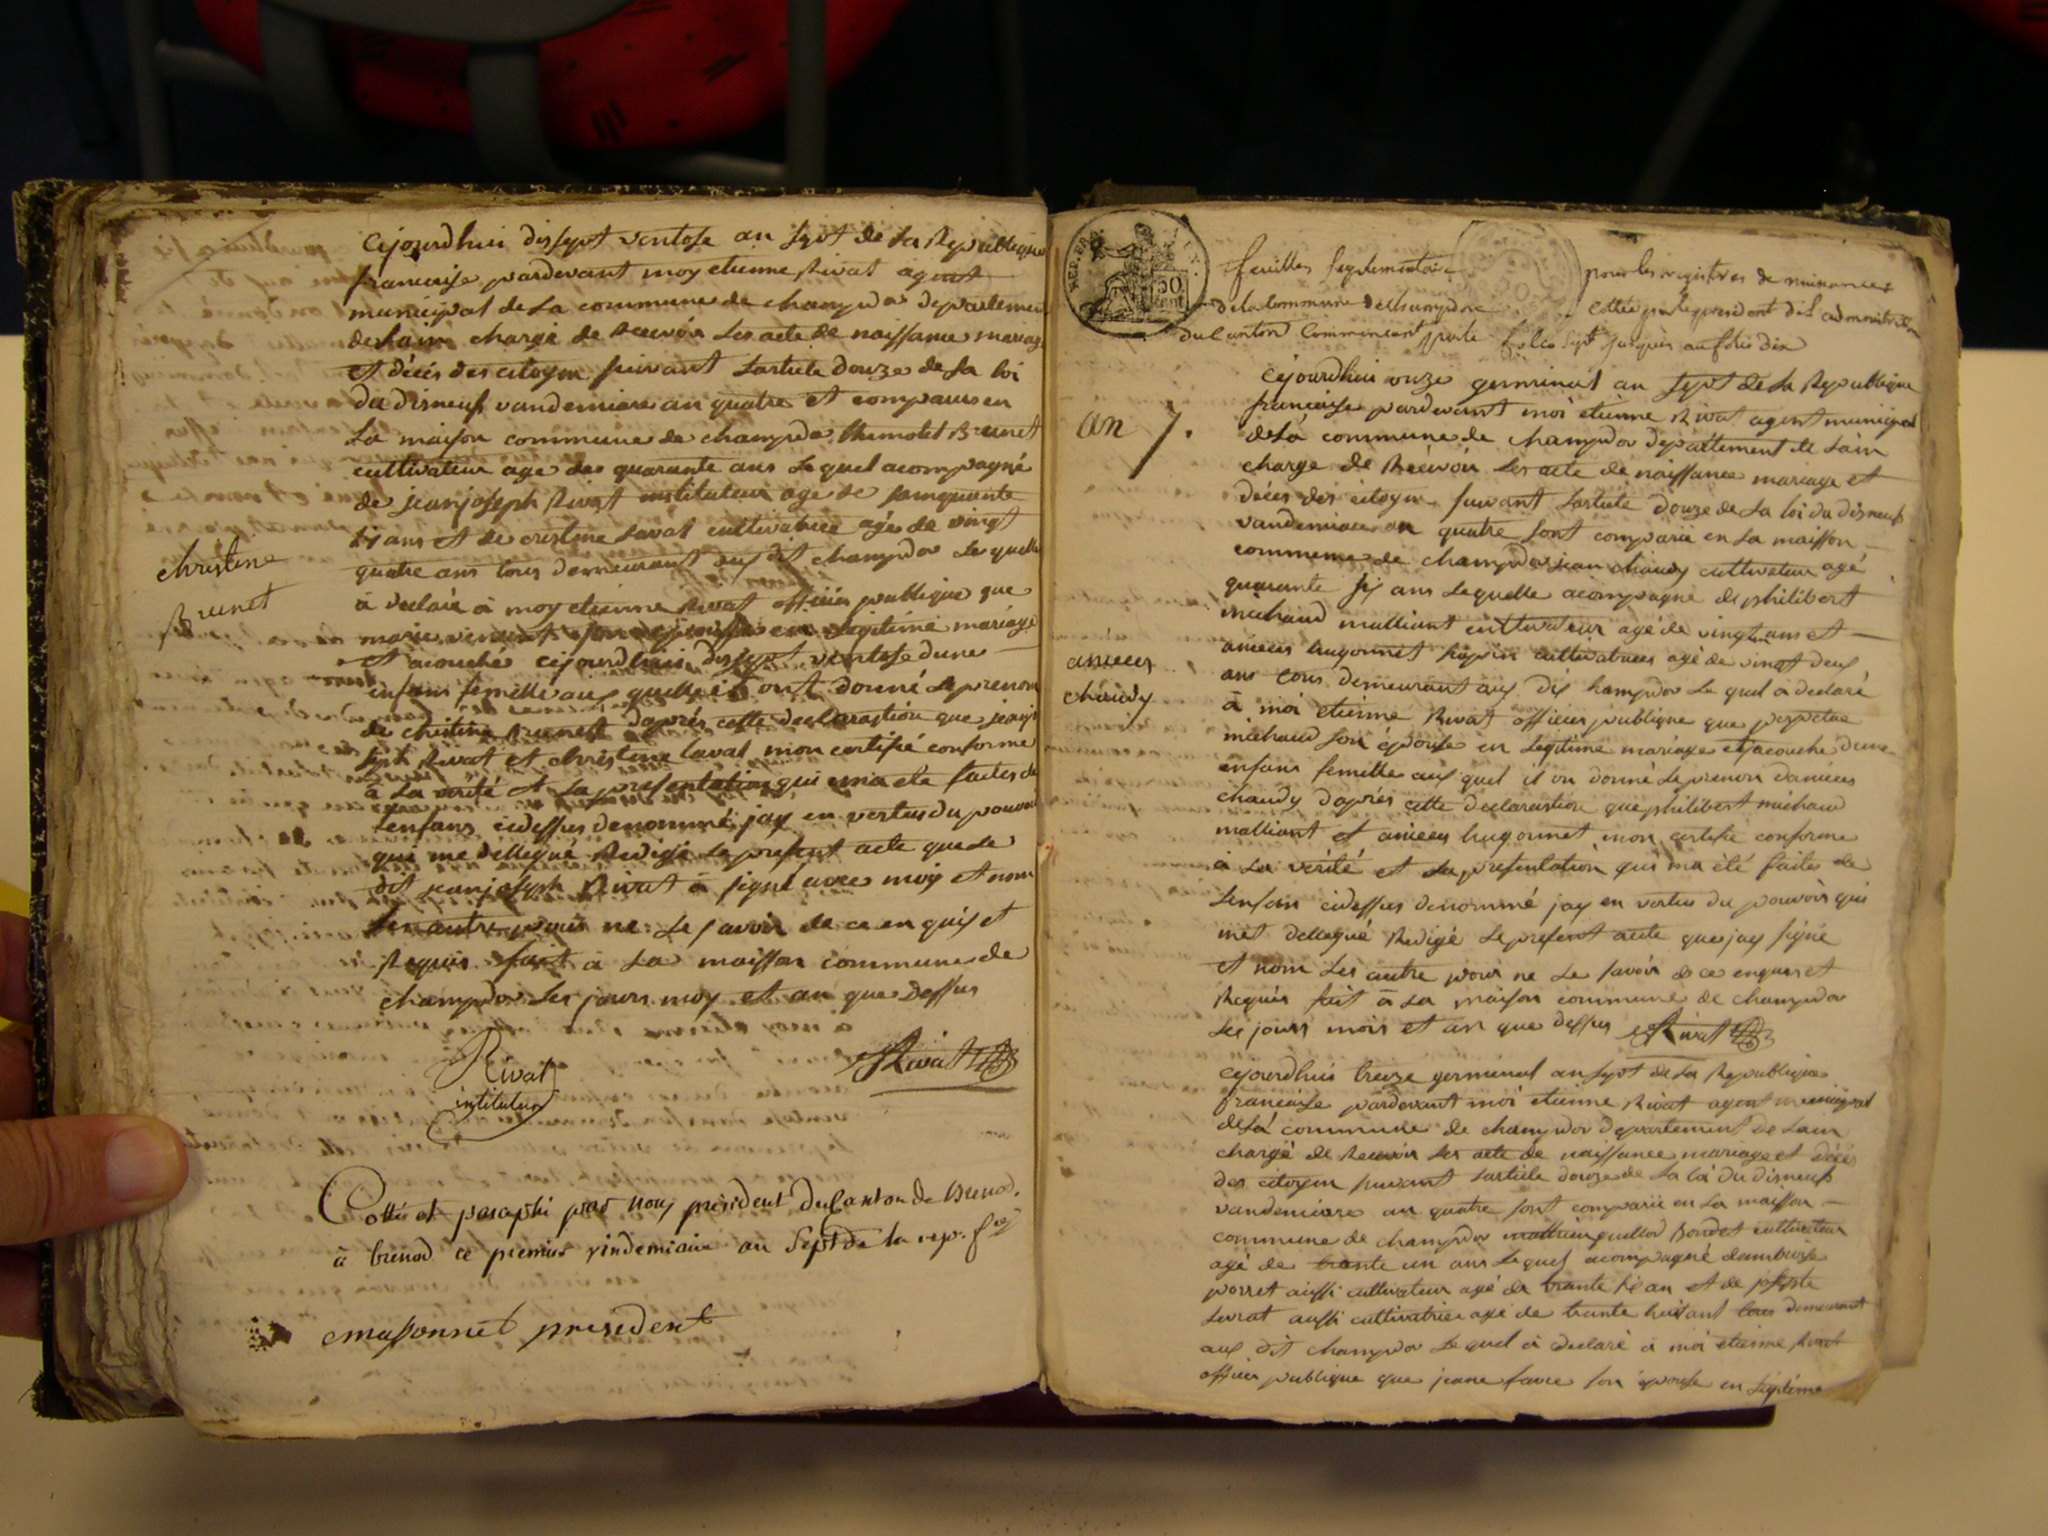 Cejourdhui dissept ventose an sept de la Republique
francaise pardevant moy etienne Rivat agent
municipal de la commune de champdor departement
de lain chargé de Recevoir les acte de naissance mariage
et décés des citoyen suivant larticle douze de la loi
du disneuf vandemiaire an quatre et comparus en
la maison commune de champdor Brunet
cultivateur age des quarante ans lequel acompagné
de jean joseph Rivat instituteur age de sinquante
ans et de cristine savat cultivatrice agé de vingt
quatre ans tous demeurant au dit champdor lequelle
à declaré à moy etienne Rivat officier publique que
marie vincent son epouse en legitime mariage
et acouché cejourdhui dissept ventose dune
enfans femille aux quelle il ont donné le prenom
de christine Brunet daprés cette declarastion que jeanjo
seph Rivat et christine lavat mon certifié conforme
à la verité et la presentation qui ma eté faites de
lenfans cidessus denommé jay en vertus du pouvoir
qui me dellegué Redigé le present acte que le
dit jean joseph Rivat à signé avec moy et nom
les autre pour ne le savoir de ce enquis et
Requis fait à la maisson commune de
champdor les jours moy et an que dessus
christine
Brunet
Rivat
intituteur
Rivat
Cotté et paraphé par nous président du Canton de brenod.
à brenod ce premier vindemiaire an Sept de la rep. fse
emasonnet president
REP. FRA.
50 cent
feuilles suplementaire pour les registres de naissances
de la Commune de Champdor cottée par le president de l'administration
du Canton Commencant par le folio sept jusques au folio dix
an 7.
Cejourdhui onze germinal an sept de la Republique
francaise pardevant moi etienne Rivat agent municipal
de la commune de champdor departement de lain
charge de Recevoir les acte de naissance mariage et
décés des citoyen suivant lartiele douze de la loi du disneuf
vandemiaire an quatre sont comparu en la maisson
commune de champdor jean chaudy cultivateur agé
quarante six ans lequelle acompagné de philibert
michaud malliant cultivateur agé de vingt ans et
amiees hugonnet cultivatrices agé de vingt deux
ans tous demeurant aux dis hampdor le quel à declaré
à moi etienne Rivat officier publique que perpetue
michaud son épouse en legitime mariage et acouché dune
enfans femille aux quel il on donné le prenom damiees
chaudy daprés cette declarastion que philibert michaud
malliant et amiees hugonnet mon certifié conforme
à la vérité et la presentation qui ma été faites de
lenfan cidessus denommé jay en vertus du pouvoir qui
met dellegué Redigé le present acte que jay signé
et nom les autre pour ne le savoir de ce enquis et
Requis fait à la maison commune de champdor
les jours mois et an que dessus Rivat
amiees
chaudy
Cejourdhui treize germinal an sept de la Republique
francaise pardevant moi etienne Rivat agent municipal
de la commune de champdor departement de lain
chargé de Recevoir les acte de naissance mariage et décés
des citoyen suivant lartiele douze de la loi du disneuf
vandemiaire an quatre sont comparu en la maisson
commune de champdor Bondet cultivateur
agé de trante un ans lequel acompagné dambroise
porret aussi cultivateur agé de trante six an et de josepte
savat aussi cultivatrice agé de trante huit ant tous demeurant
aux dit champdor le quel à declaré à moi etienne Rivat
officier publique que jeane favre son epouse en legitime